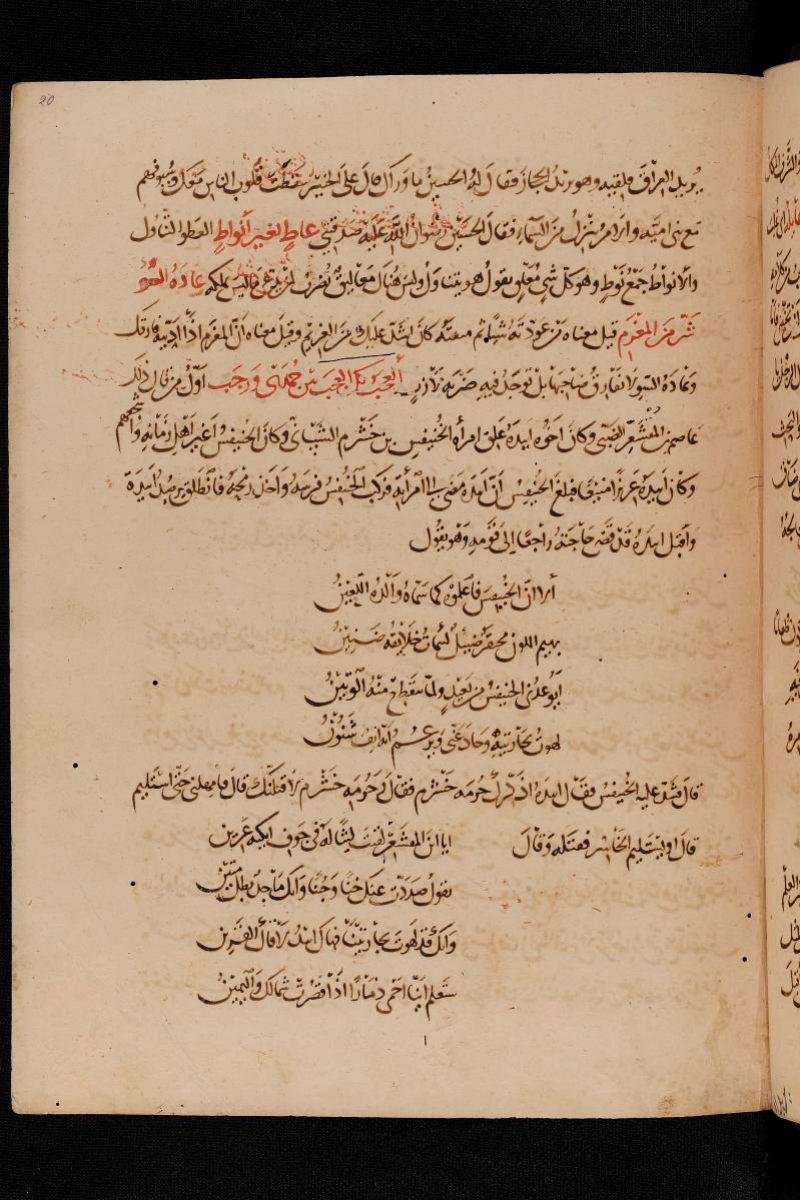 20
يريد العراق فلقيه وهو يريد الحجاز فقال له الحسين ما وراك قال على الخبير سقطت قلوب الناس معك وسيوفهم
مع بني امية والامر ينزل من السماء فقال الحسين رضوان الله عليه صدقتني عاط بغير انواط العطو التناول
والانواط جمع نوط وهو كل شي معلق يقول هو يتناول وليس هناك معاليق يضرب لمن يدعي ما ليس يملكه عادة السوء
شر من المغرم قيل معناه من عودته شيئا ثم منعته كان اشد عليك من الغريم وقيل معناه ان المغرم اذا اديته فارقك
وعادة السوء لا تفارق صاحبها بل توجد فيه ضربة لازب العجب كل العجب بين جمادى ورجب اول من قال ذلك
عاصم بن المقشعر الضبي وكان اخوه ابيده علق امرأة الخنيفس بن خشرم الشيباني وكان الخنيفس اغير اهل زمانه واشجعهم
وكان ابيده عزيزا منيعا فبلغ الخنيفس ان ابيده مضى الى امرأته فركب الخنيفس فرسه واخذ رمحه فانطلق يرصد ابيدة
واقبل ابيده قد قضى حاجته راجعا الى قومه وهو يقول
الا ان الخنيفس فاعلموه كما سماه والده اللعين
بهيم اللون محتقر ضئيل لئيمات خلايقه ضنين
ايوعدني الخنيفس من بعيد ولما ينقطع منه الوتين
لهوت بجارتيه وحاد عني ويزعم انه انف شنون
قال فشد عليه الخنيفس فقال ابيدة اذكرك حرمة خشرم فقال وحرمة خشرم لاقتلنك قال فامهلني حتى استليم
قال اويستليم الحاسر فقتله وقال
ايا ابن المقشعر لقيت ليثا له في جوف ايكته عرين
تقول صددت عنك خنا وجبنا وانك ماجد بطل متين
وانك قد لهوت بجارتينا فهاك ابيد لاقاك القرين
ستعلم اينا احمى ذمارا اذا قصرت شمالك واليمين